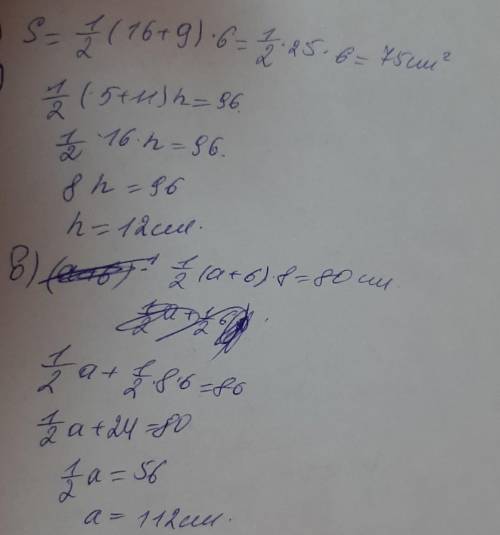 ) S = 1/2 (16+9)·6 = 1/2·25·6 = 75 см²
)
1/2 (·5+11)h = 96.
1/2·16·h = 96.
8h = 96
h = 12 см.
в) 1/2 (a+6)·8 = 80 см.
1/2 a + 1/2·8·6 = 80
1/2 a + 24 = 80
1/2 a = 56
a = 112 см.